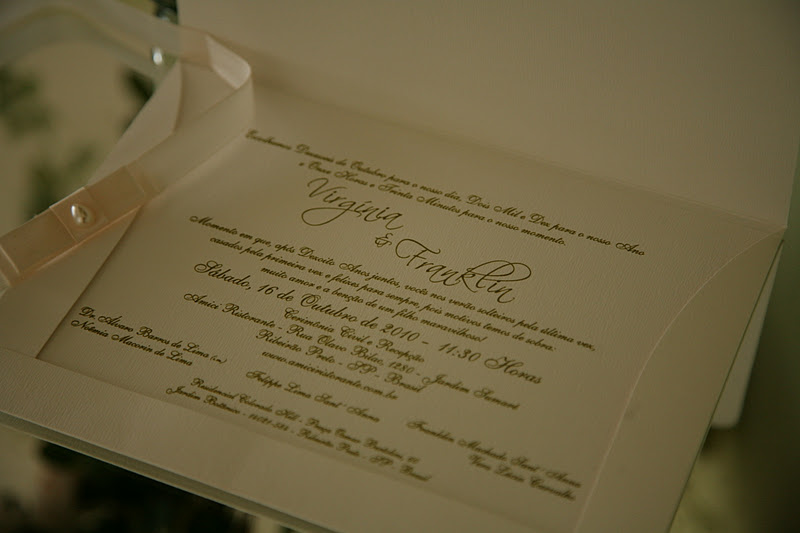 Escolhemos Dezesseis de Outubro para o nosso dia, Dois Mil e Dez para o nosso Ano
e Onze Horas e Trinta Minutos para o nosso momento.
Virgínia
&
Franklin
Momento em que, após Dezoito Anos juntos, vocês nos verão solteiros pela última vez,
casados pela primeira vez e felizes para sempre, pois motivos temos de sobra:
muito amor e a benção de um filho maravilhoso!
Sábado, 16 de Outubro de 2010 - 11:30 Horas
Cerimônia Civil e Recepção
Amici Ristorante - Rua Olavo Bilac, 1280 - Jardim Sumaré
Ribeirão Preto - SP - Brasil
www.amiciristorante.com.br
Dr. Álvaro Barros de Lima (in)
Noêmia Mazorin de Lima
Filippe Lima Sant'Anna
Franklin Machado Sant'Anna
Vera Lúcia Carvalho
Residencial Colorado Hill - Praça
Jardim Botânico - Ribeirão Preto - SP - Brasil